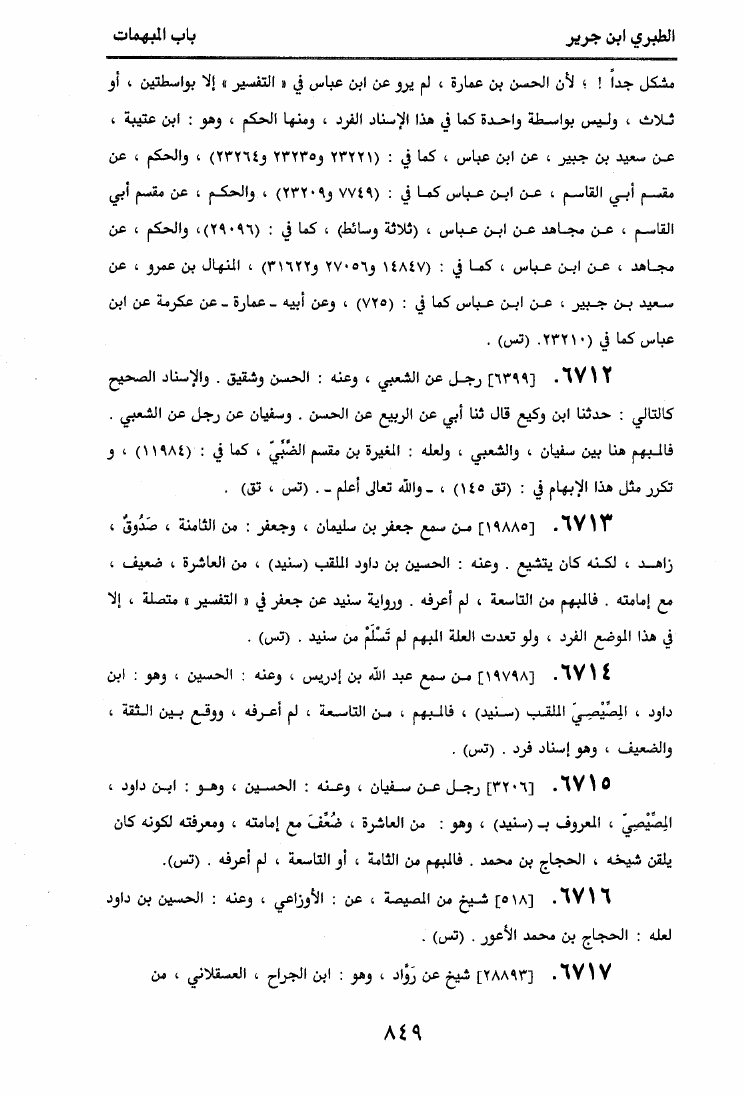 الطبري ابن جرير
باب المبهمات
مشكل جداً ! ؛ لأن الحسن بن عمارة ، لم يرو عن ابن عباس في « التفسير » إلا بواسطتين ، أو
ثلاث ، وليس بواسطة واحدة كما في هذا الإسناد الفرد ، ومنها الحكم ، وهو : ابن عتيبة ،
عن سعيد بن جبير ، عن ابن عباس ، كما في : (٢٣٢٢١ و٢٣٢٣٥ و٢٣٢٦٤) ، والحكم ، عن
مقسم أبي القاسم ، عن ابن عباس كما في : (٧٧٤٩ و٢٣٢٠٩) ، والحكم ، عن مقسم أبي
القاسم ، عن مجاهد عن ابن عباس ، (ثلاثة وسائط) ، كما في : (٢٩٠٩٦)، والحكم ، عن
مجاهد ، عن ابن عباس ، كما في : (١٤٨٤٧ و٢٧٠٥٦ و٣١٦٢٢) ، المنهال بن عمرو ، عن
سعيد بن جبير ، عن ابن عباس كما في : (٧٢٥) ، وعن أبيه ـ عمارة ـ عن عكرمة عن ابن
عباس كما في (٢٣٢١٠. (تس) .
٦٧١٢. [٦٣٩٩] رجل عن الشعبي ، وعنه : الحسن وشقيق . والإسناد الصحيح
كالتالي : حدثنا ابن وكيع قال ثنا أبي عن الربيع عن الحسن . وسفيان عن رجل عن الشعبي .
فالمبهم هنا بين سفيان ، والشعبي ، ولعله : المغيرة بن مقسم الضَّبِّيّ ، كما في : (١١٩٨٤) ، و
تكرر مثل هذا الإبهام في : (تق ١٤٥) ، ـ والله تعالى أعلم ـ . (تس ، تق) .
٦٧١٣. [١٩٨٨٥] من سمع جعفر بن سليمان ، وجعفر : من الثامنة ، صَدُوقٌ ،
زاهد ، لكنه كان يتشيع . وعنه : الحسين بن داود الملقب (سنيد) ، من العاشرة ، ضعيف ،
مع إمامته . فالمبهم من التاسعة ، لم أعرفه . ورواية سنيد عن جعفر في « التفسير » متصلة ، إلا
في هذا الموضع الفرد ، ولو تعدت العلة المبهم لم تَسْلَمْ من سنيد . (تس) .
٦٧١٤. [١٩٧٩٨] من سمع عبد الله بن إدريس ، وعنه : الحسين ، وهو : ابن
داود ، المِصِّيْصِيّ الملقب (سنيد) ، فالمبهم ، من التاسعة ، لم أعرفه ، ووقع بين الثقة ،
والضعيف ، وهو إسناد فرد . (تس) .
٦٧١٥. [٣٢٠٦] رجل عن سفيان ، وعنه : الحسين ، وهو : ابن داود ،
المِصِّيْصِيّ ، المعروف بـ (سنيد) ، وهو : من العاشرة ، ضُعِّفَ مع إمامته ، ومعرفته لكونه كان
يلقن شيخه ، الحجاج بن محمد . فالمبهم من الثامة ، أو التاسعة ، لم أعرفه . (تس).
٦٧١٦. [٥١٨] شيخ من المصيصة ، عن : الأوزاعي ، وعنه : الحسين بن داود
لعله : الحجاج بن محمد الأعور . (تس) .
٦٧١٧. [٢٨٨٩٣] شيخ عن رَوَّاد ، وهو : ابن الجراح ، العسقلاني ، من
٨٤٩